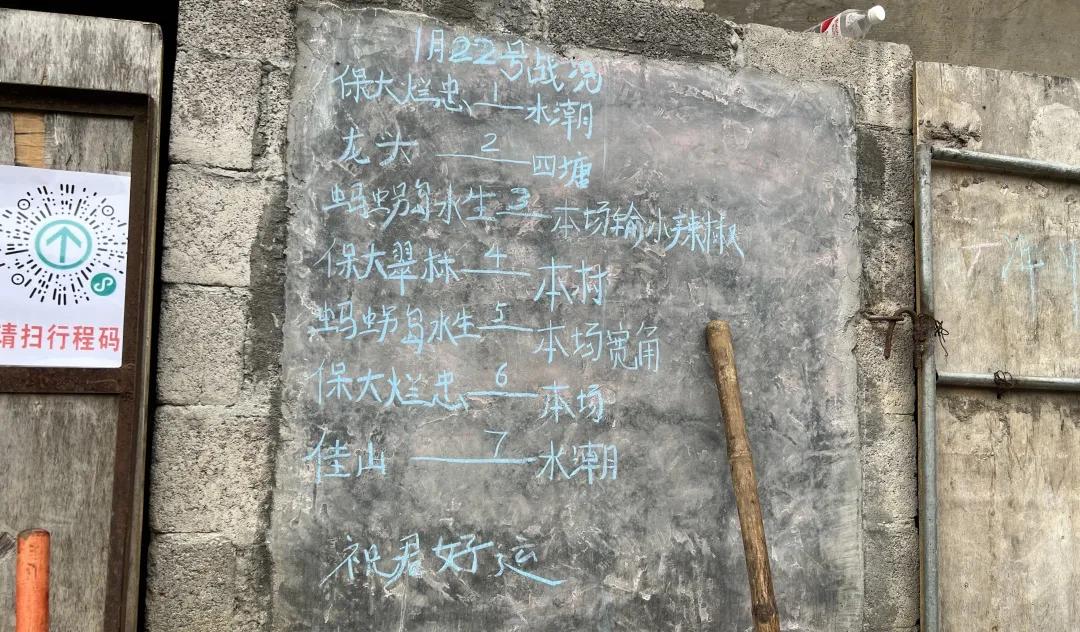 1月22号战况
保大烂忠 1 水潮
龙头 2 四塘
蚂蚜岛水生 3 本场输小辣椒
保大翠林 4 本村
蚂蚜岛水生 5 本场宽角
保大烂忠 6 本场
佳山 7 水潮
祝君好运
请扫行程码